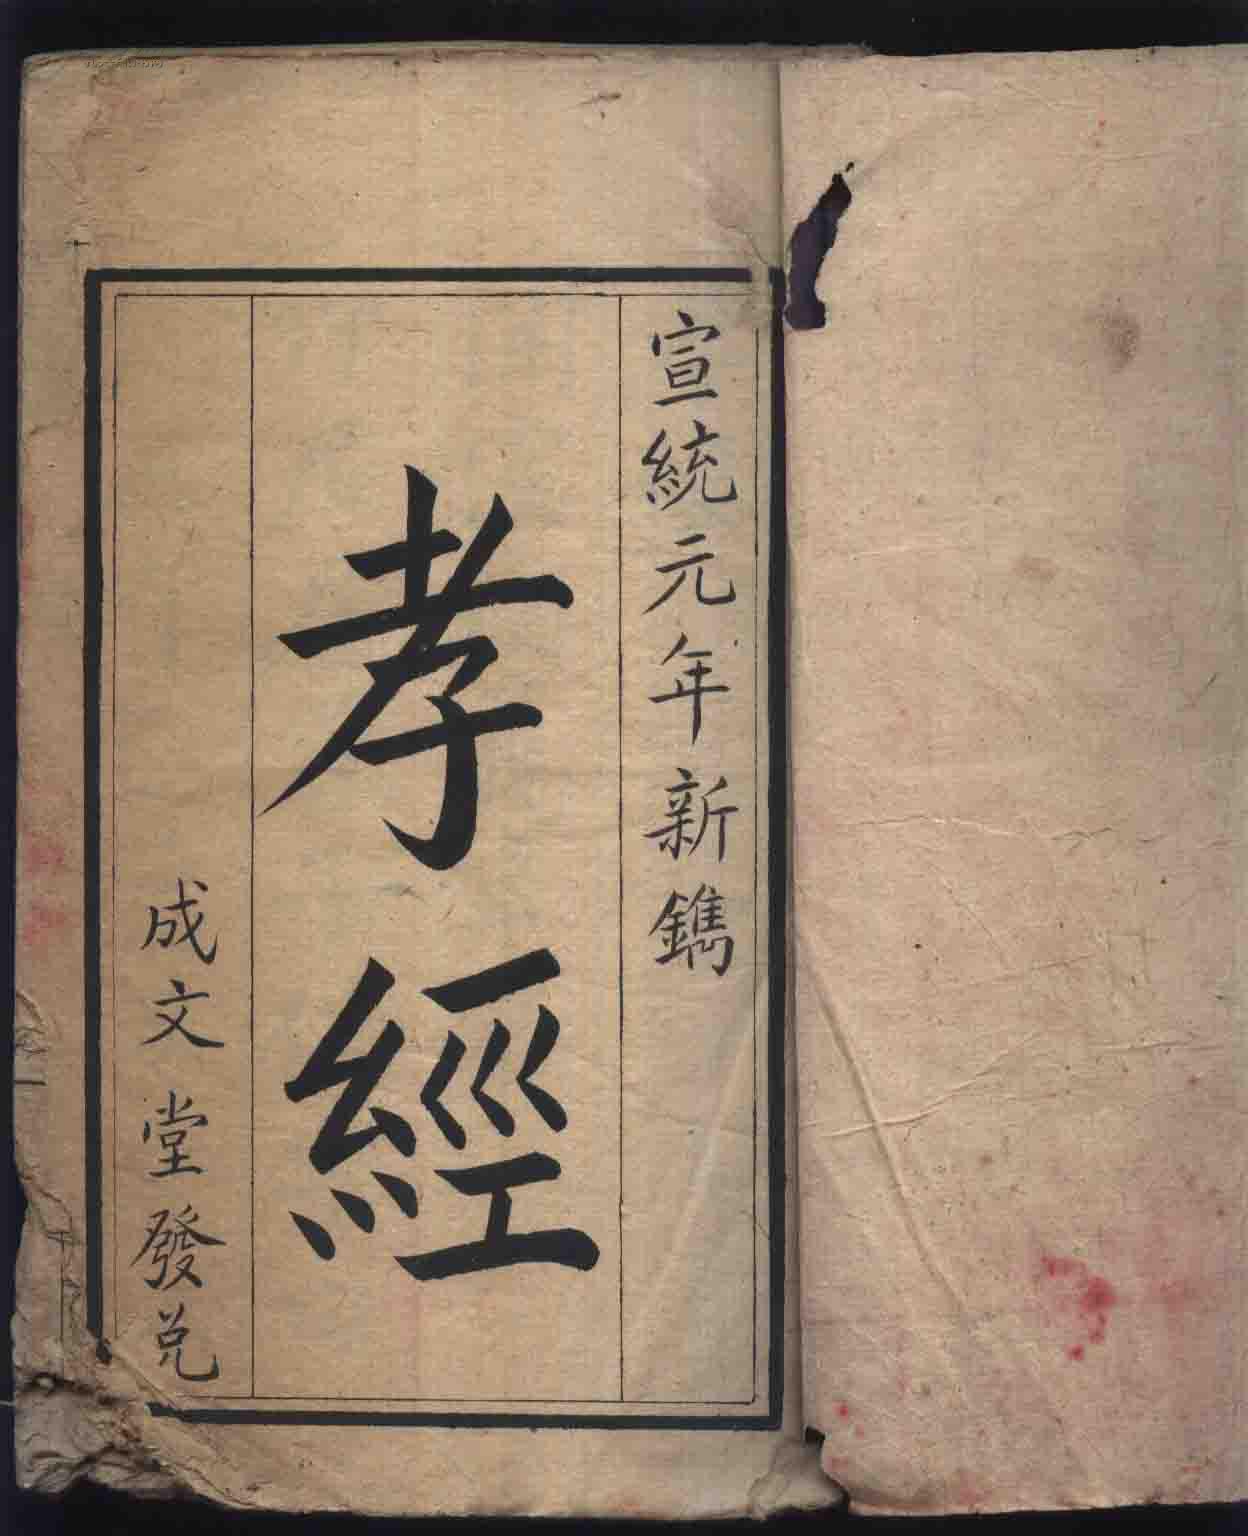 宣統元年新鐫
孝經
成文堂發兌